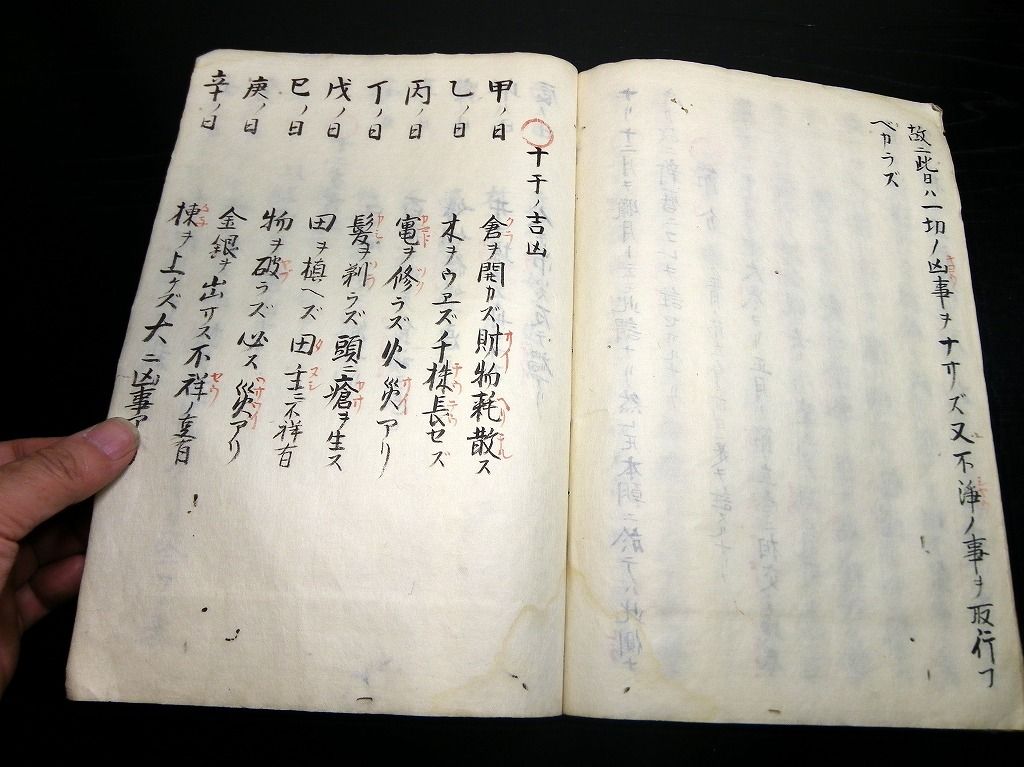 故ニ此日ハ一切ノ凶事ヲナサズ又不浄ノ事ヲ取行フ
ベカラズ
十干ノ吉凶
甲ノ日 倉ヲ開カズ財物耗散ス
乙ノ日 木ヲウヱズ千株長セズ
丙ノ日 竃ヲ修ラズ火災アリ
丁ノ日 髪ヲ剃ラズ頭ニ瘡ヲ生ス
戊ノ日 田ヲ植ヘズ田主ニ不祥有
巳ノ日 物ヲ破ラズ必ス災アリ
庚ノ日 金銀ヲ出サス不祥ノ亊有
辛ノ日 棟ヲ上ケズ大ニ凶事ア